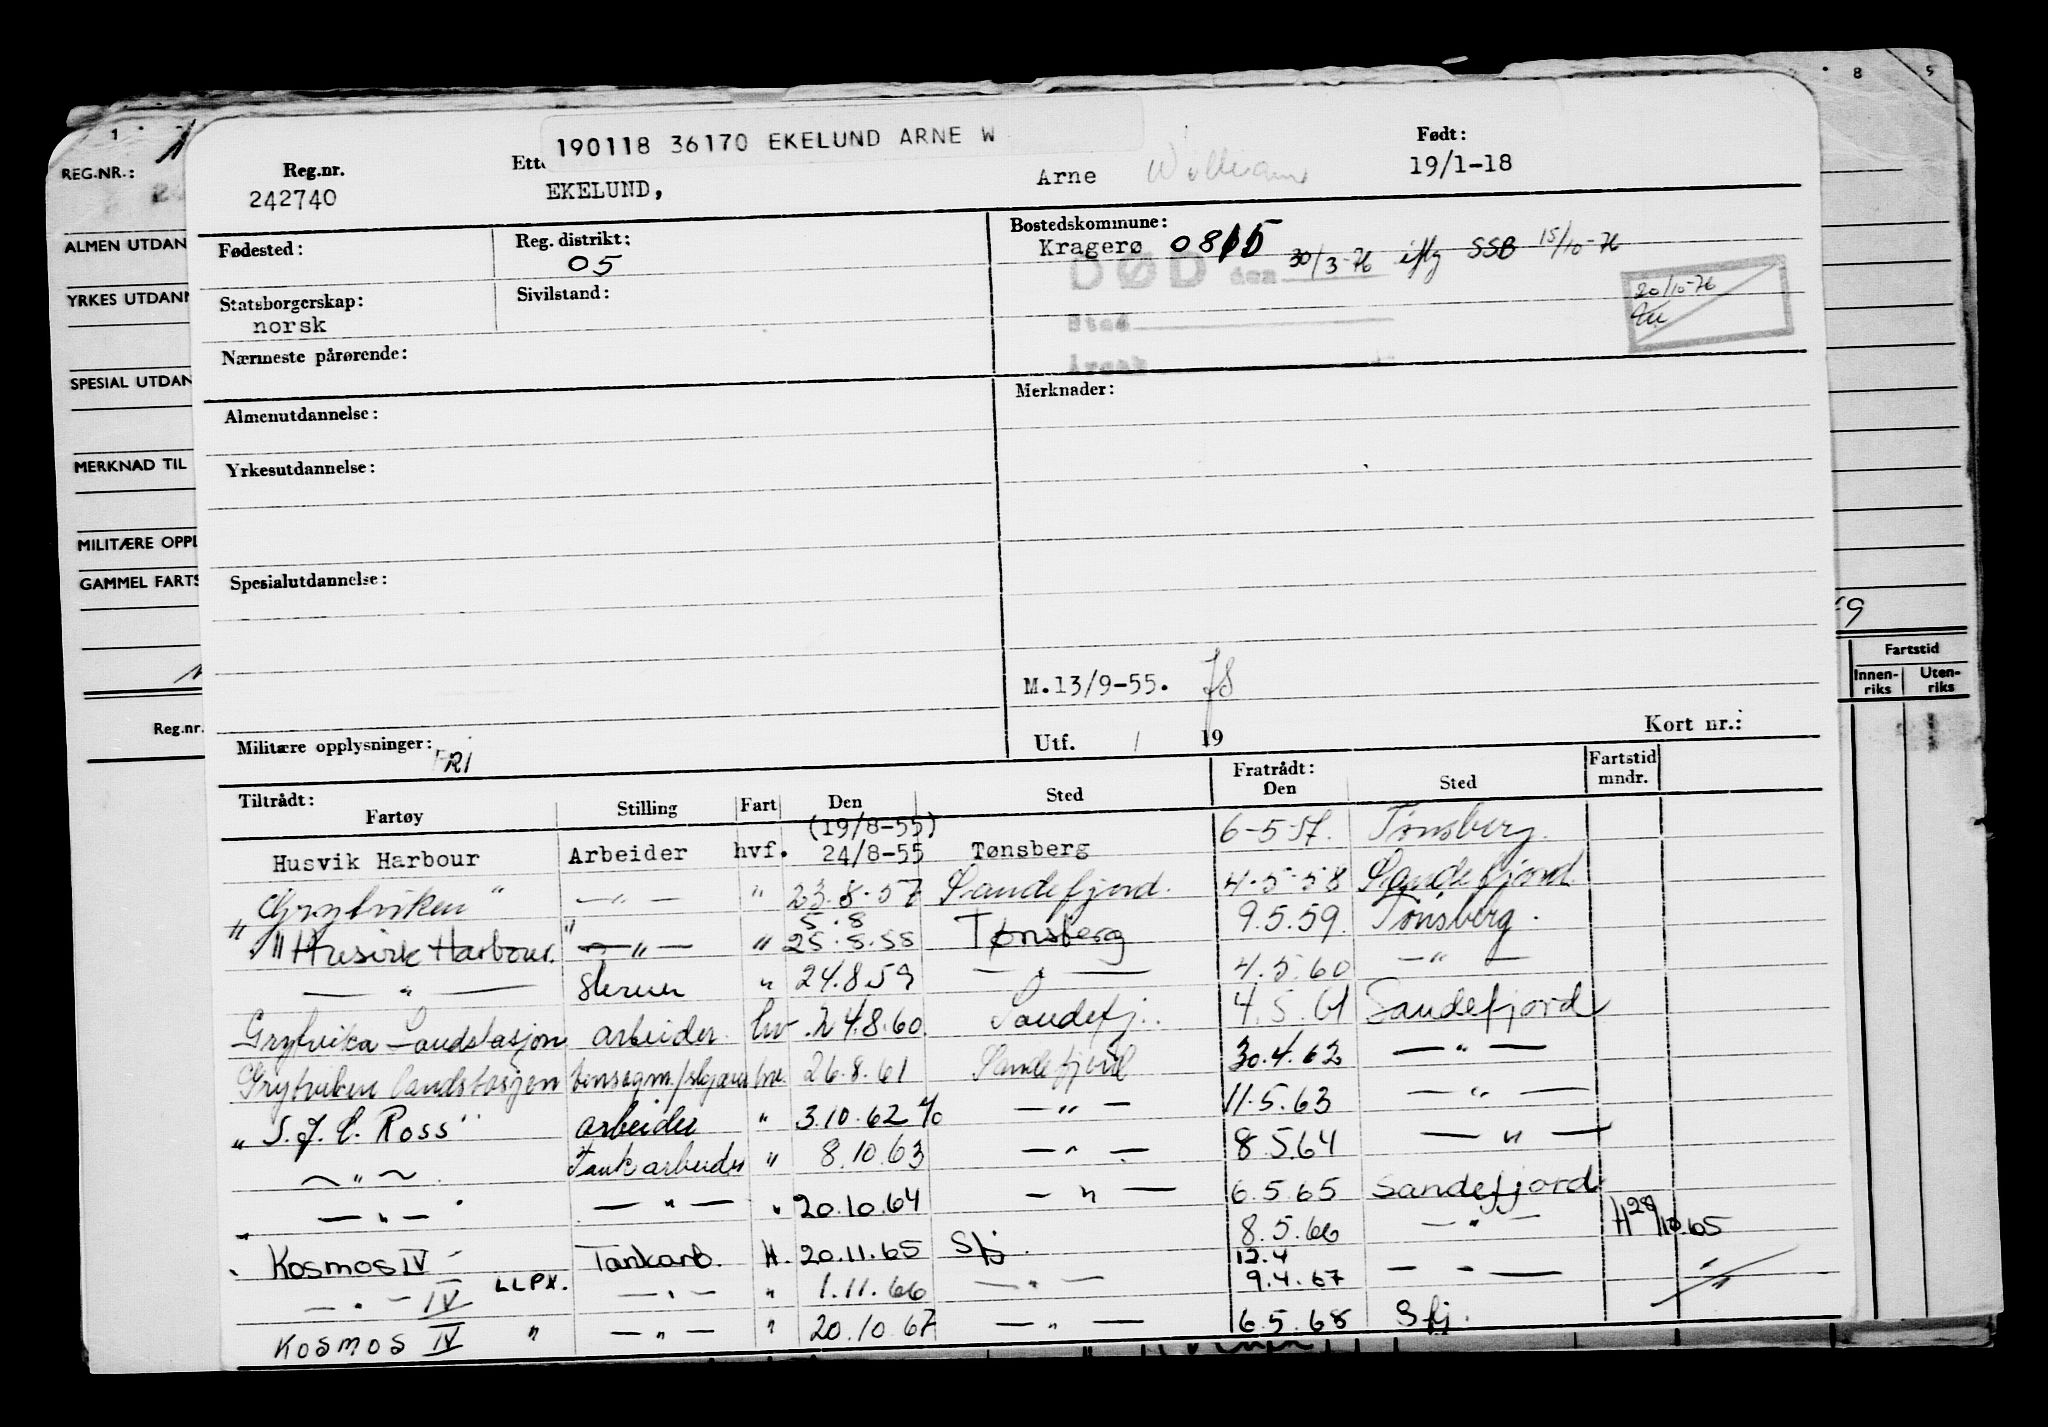 190118 36170 EKELUND ARNE W
Reg.nr. Født:
242740 EKELUND, Arne William 19/1-18
Fødested: Reg. distrikt: Bostedskommune:
05 Kragerø 0815
DØD den 30/3-76 iflg SSB 15/10-76
Statsborgerskap: Sivilstand:
norsk
Sted
20/10-76
Nærmeste pårørende:
Årsak
Almenutdannelse: Merknader:
Yrkesutdannelse:
Spesialutdannelse:
M.13/9-55.
Militære opplysninger: FRI Utf. / 19 Kort nr.:
Tiltrådt: Fratrådt: Fartstid
Fartøy Stilling Fart Den Sted Den Sted mndr.
(19/8-55)
Husvik Harbour Arbeider hvf. 24/8-55 Tønsberg 6-5-57. Tønsberg.
"Grytviken" —"— " 23.8.57 Sandefjord. 4.5.58 Sandefjord
5.8
" Husvik Harbour. —"— " 25.8.58 Tønsberg 9.5.59. Tønsberg.
—"— " 24.8.59 —"— 4.5.60 —"—
Grytvika Landstasjon arbeider. hv. 24.8.60. Sandefj. 4.5.61 Sandefjord
Grytviken landstasjon hv. 26.8.61 Sandefjord 30.4.62 —"—
"S.J.C. Ross" arbeider " 3.10.62 —"— 11.5.63 —"—
—"— Tankarbeider " 8.10.63 —"— 8.5.64 —"—
—"— —"— " 20.10.64 —"— 6.5.65 Sandefjord
Kosmos IV Tankarb. H. 20.11.65 Sfj. 8.5.66 —"— H 28/10.65
12.4
—"— IV LLPX. —"— " 1.11.66 —"— 9.4.67 —"—
Kosmos IV " —"— " 20.10.67 —"— 6.5.68 Sfj.
1
8 5
REG.NR.:
ALMEN UTDAN
YRKES UTDANN
SPESIAL UTDAN
MERKNAD TIL
MILITÆRE OPPL
GAMMEL FARTS
Reg.nr.
9
Fartstid
Innen-riks Uten-riks